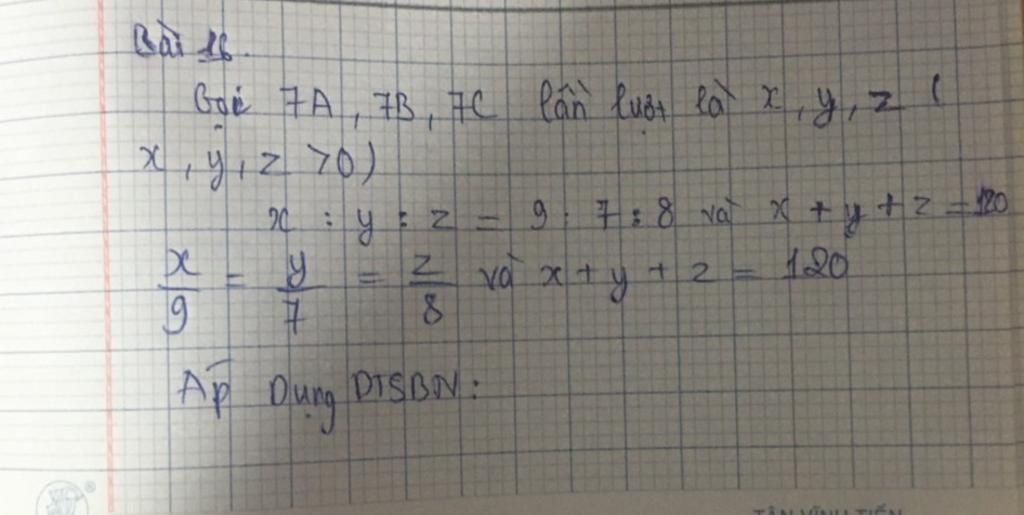 Bài 16.
Gọi 7A, 7B, 7C lần lượt là x, y, z (
x, y, z >0)
x : y : z = 9 : 7 : 8 và x + y + z = 120
x/9 = y/7 = z/8 và x + y + z = 120
Áp Dụng DTSBN:
TÂN VĨNH TIẾN